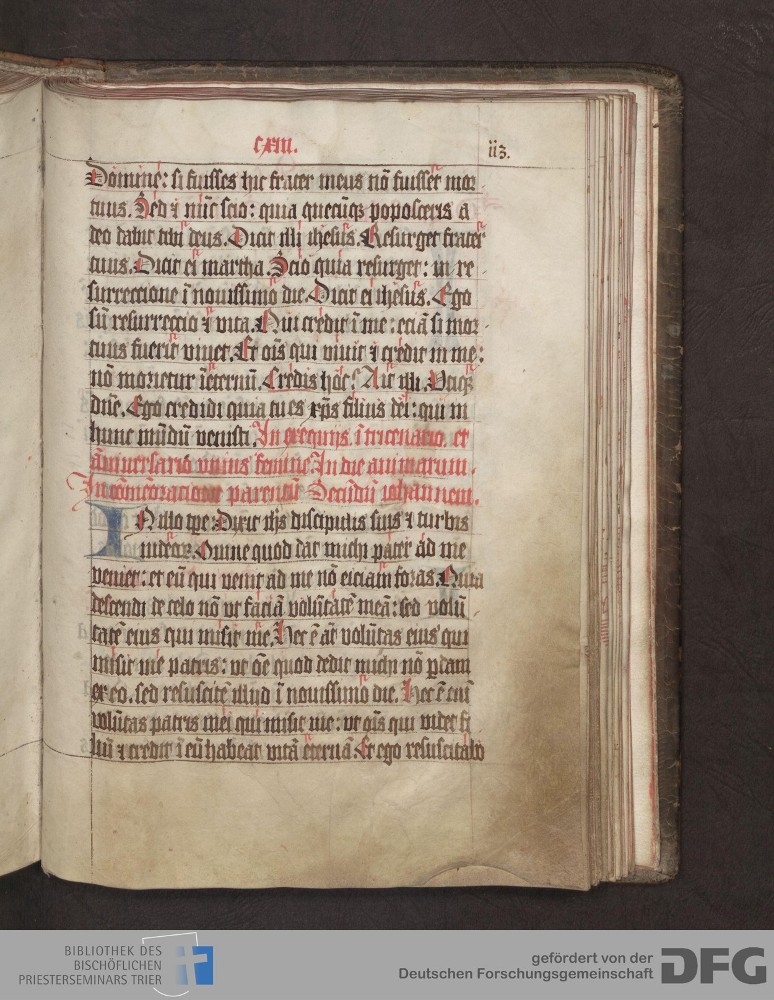 cxiii.
113.
Domine: si fuisses hic frater meus nō fuisset mor
tuus. Sed ⁊ nūc scio: quia quecūqꝫ poposceris a
deo dabit tibi deus. Dicit illi ihesus. Resurget frater
tuus. Dicit ei martha. Scio quia resurget: in re
surreccione ī nouissimo die. Dicit ei ihesus. Ego
sū resurreccio ⁊ vita. Qui credit ī me: eciā si mor
tuus fuerit viuet. Et oīs qui viuit ⁊ credit in me:
nō morietur īeternū. Credis hoc? Ait illi. Vtiqꝫ
dn̄e. Ego credidi quia tu es xp̄s filius dei: qui in
hunc mūdū venisti. In exequijs. ī tricenario. et
āniuersario vnius femine. In die animarum.
In cōmēoracione parentū Secūdū iohannem.
IN illo tp̄e: Dixit ih̄s discipulis suis ⁊ turbis
iudeoꝝ. Omne quod dat michi pater ad me
veniet: et eū qui venit ad me nō eiciam foras. Quia
descendi de celo nō vt faciā volūtatē meā: sed volū
tatē eius qui misit me. Hec ē āt volūtas eius qui
misit me patris: vt oē quod dedit michi nō ꝑdam
ex eo. sed resuscitē illud ī nouissimo die. Hec ē em̄
volūtas patris mei qui misit me: vt oīs qui videt fi
liū ⁊ credit ī eū habeat vitā eternā. Et ego resuscitabo
BIBLIOTHEK DES
BISCHÖFLICHEN
PRIESTERSEMINARS TRIER
gefördert von der
Deutschen Forschungsgemeinschaft
DFG